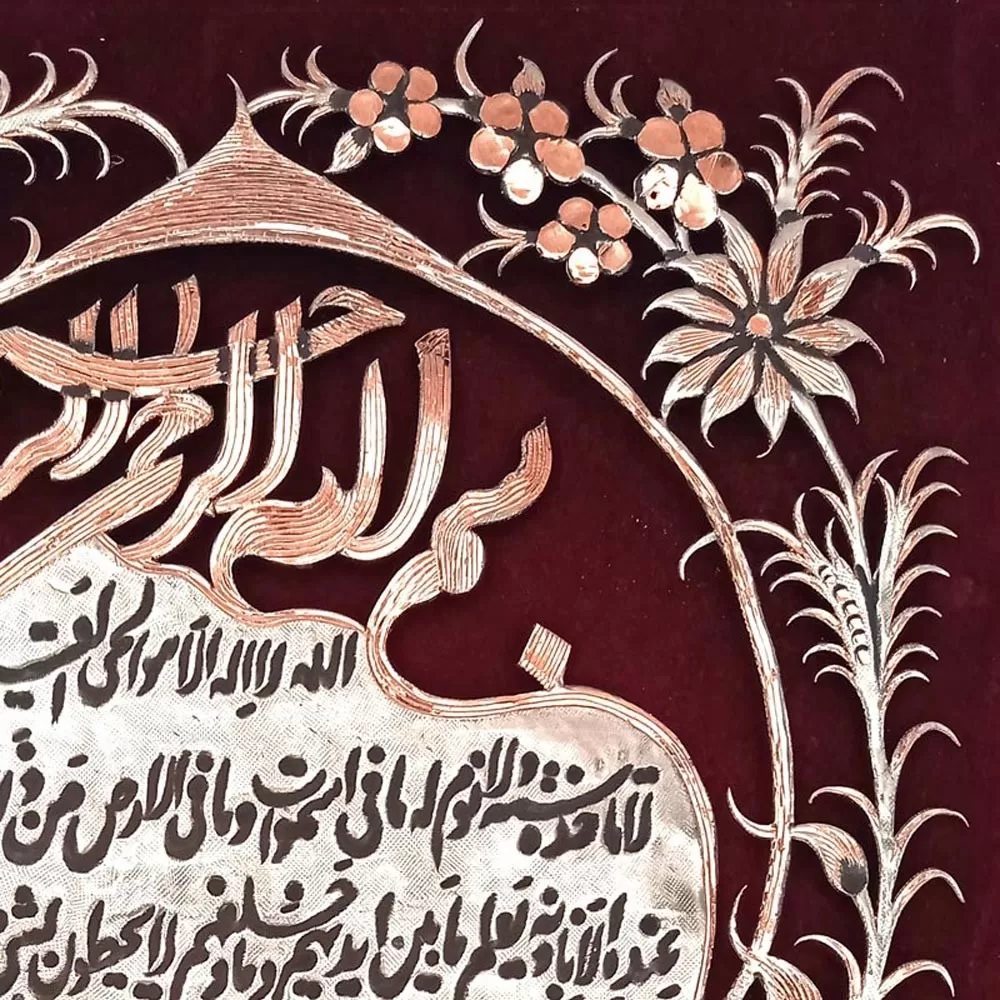 بسم الله الرحمن الرحیم
الله لا اله الا هو الحی القیـ
لا تاخذه سنة ولا نوم له ما فی السموات وما فی الارض من ذا
عنده الا باذنه یعلم ما بین ایدیهم وما خلفهم ولا یحیطون بشی